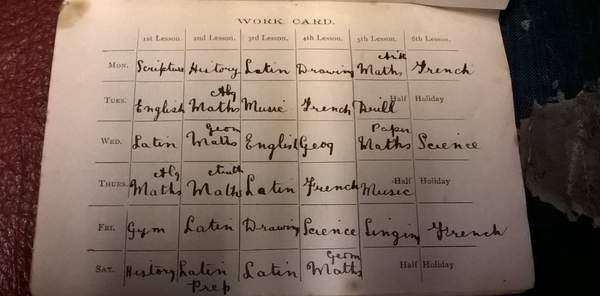 WORK CARD.
1st Lesson. 2nd Lesson. 3rd Lesson. 4th Lesson. 5th Lesson. 6th Lesson.
Arith
MON. Scripture History Latin Drawing Maths French
Alg
TUES. English Maths Music French Drill Half Holiday
Geom Paper
WED. Latin Maths English Geog Maths Science
Alg Arith
THURS. Maths Maths Latin French Music Half Holiday
FRI. Gym Latin Drawing Science Singing French
Geom
SAT. History Latin Latin Maths Half Holiday
Prep